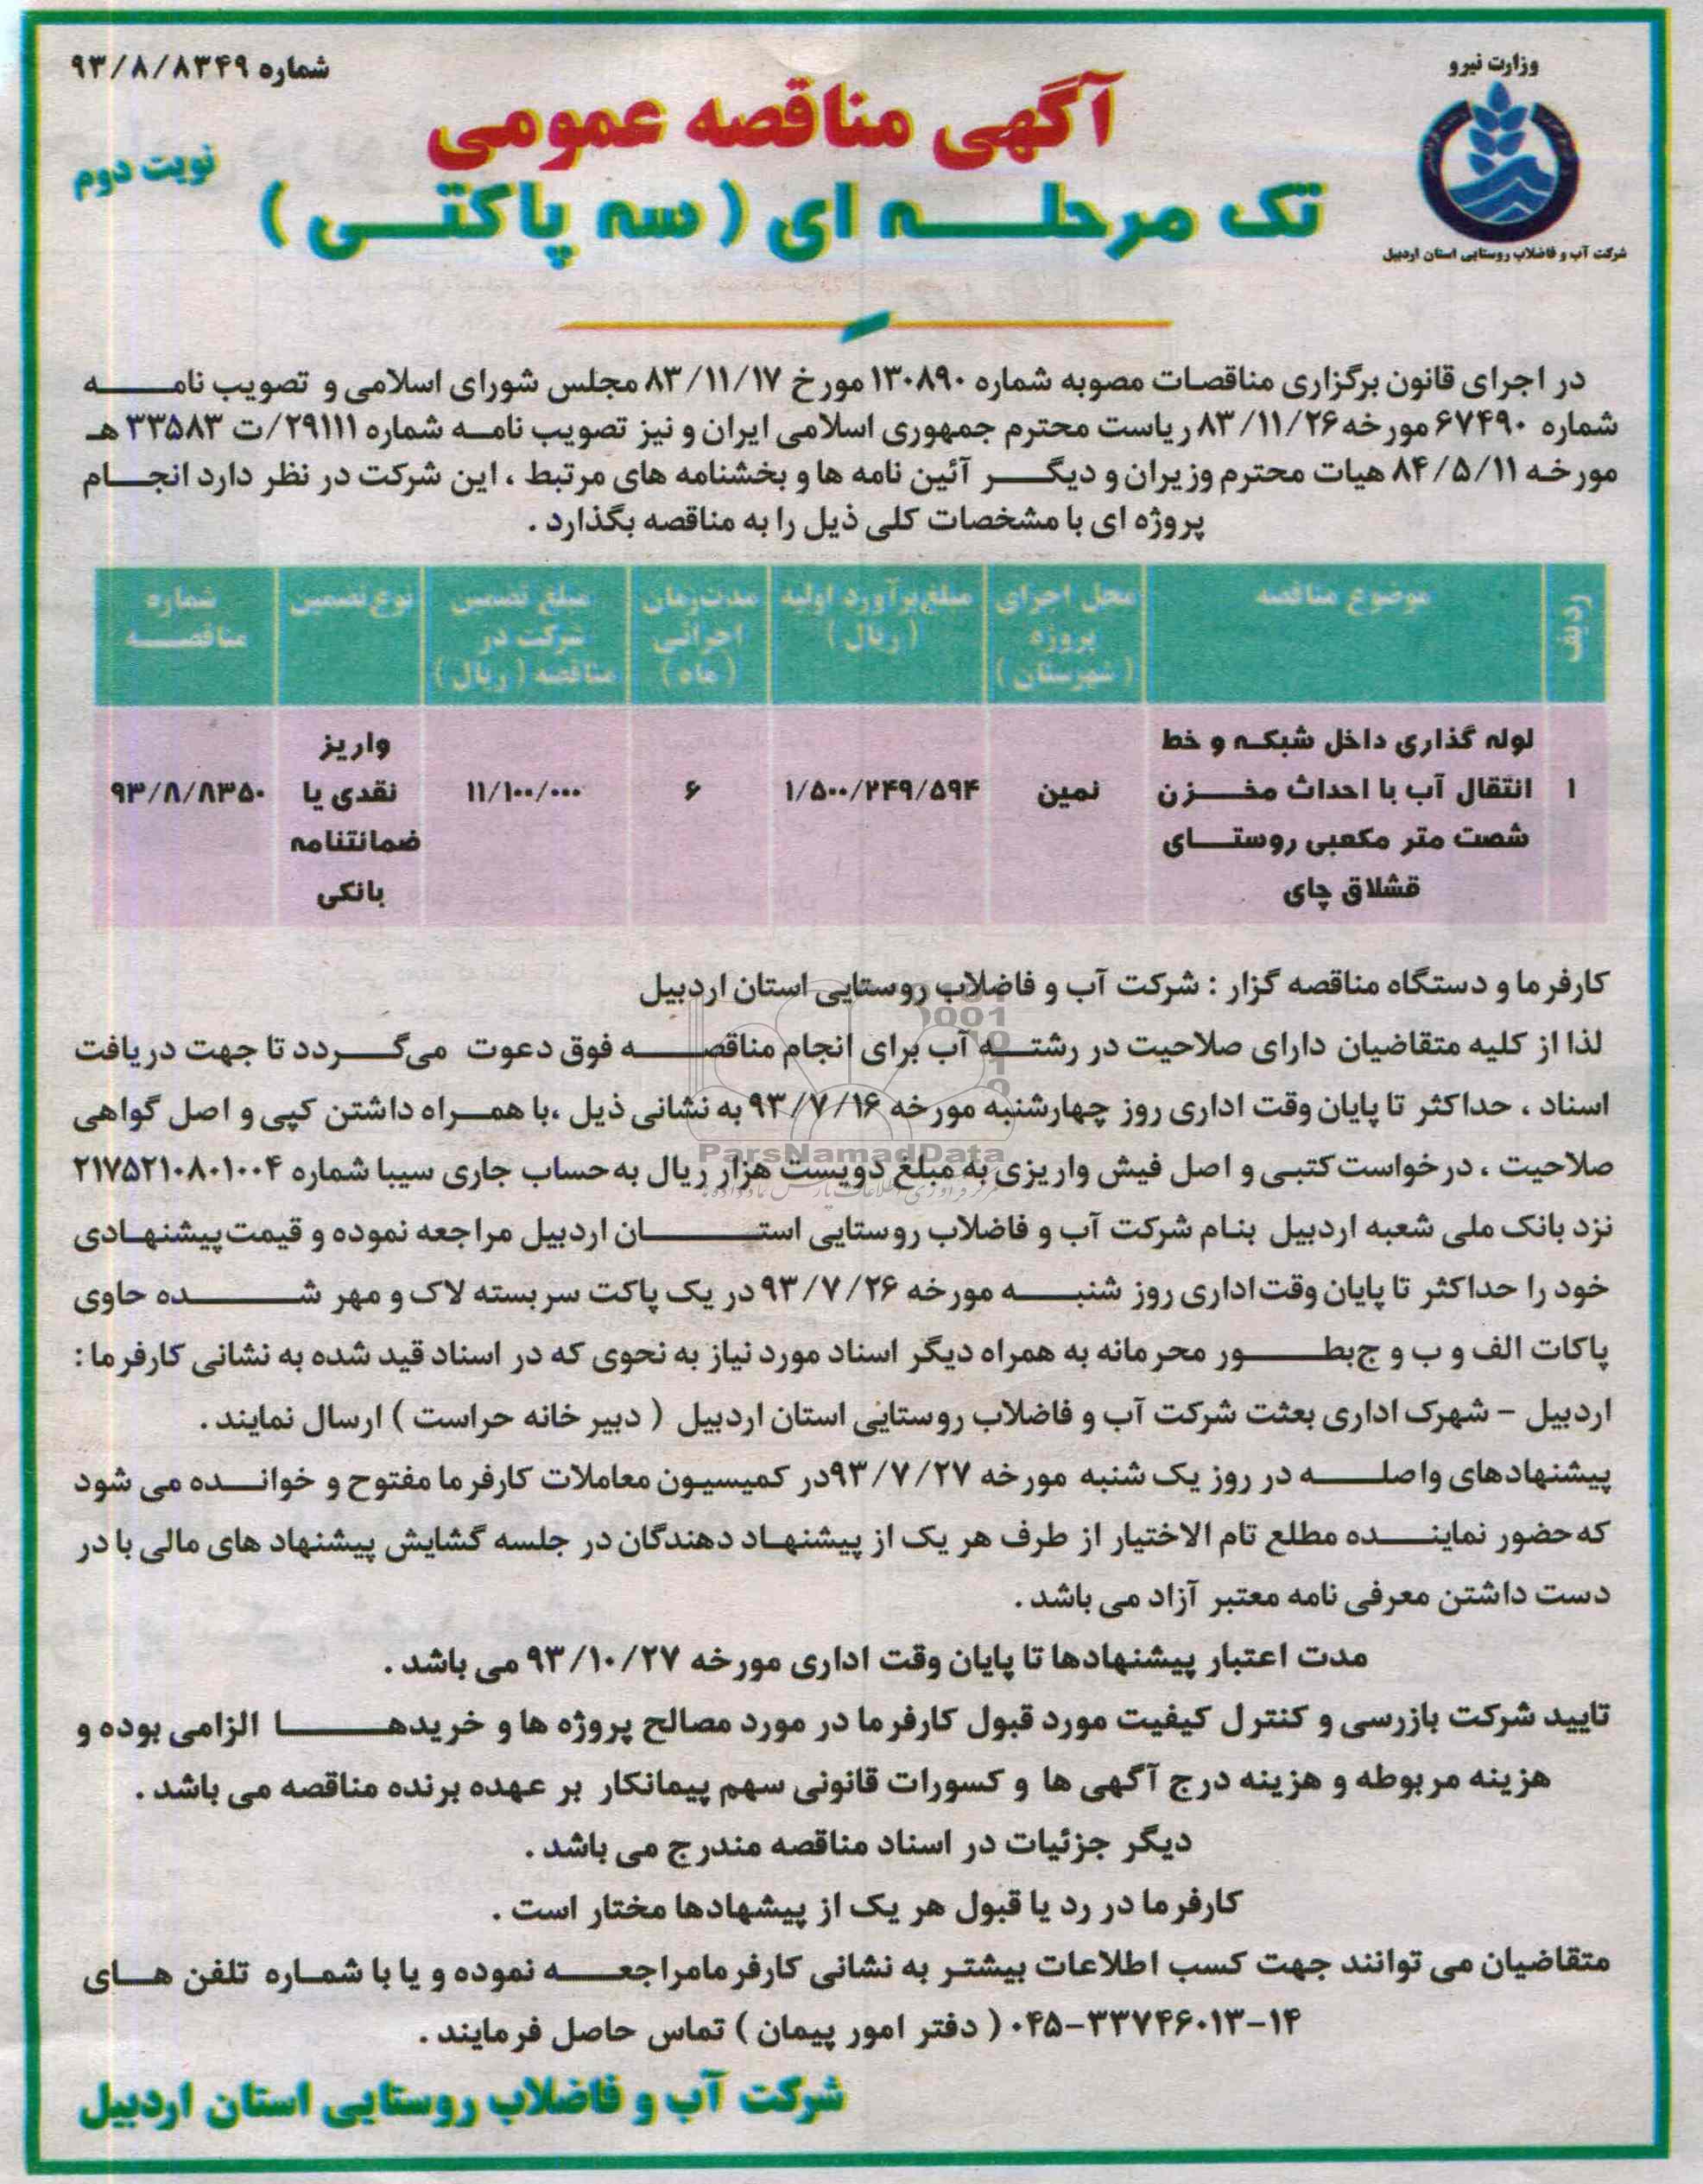 وزارت نیرو
شرکت آب و فاضلاب روستایی استان اردبیل
شماره ۹۳/۸/۸۳۴۹
آگهی مناقصه عمومی
نوبت دوم
تک مرحلـــه ای ( سه پاکتــی )
در اجرای قانون برگزاری مناقصات مصوبه شماره ۱۳۰۸۹۰ مورخ ۸۳/۱۱/۱۷ مجلس شورای اسلامی و تصویب نامـــه
شماره ۶۷۴۹۰ مورخه ۸۳/۱۱/۲۶ ریاست محترم جمهوری اسلامی ایران و نیز تصویب نامــه شماره ۲۹۱۱۱/ت ۳۳۵۸۳ هـ
مورخـه ۸۴/۵/۱۱ هیات محترم وزیران و دیگـــر آئین نامه ها و بخشنامه های مرتبط ، این شرکت در نظر دارد انجـــام
پروژه ای با مشخصات کلی ذیل را به مناقصه بگذارد .
ردیف
موضوع مناقصه
محل اجرای پروژه ( شهرستان )
مبلغ برآورد اولیه ( ریال )
مدت زمان اجرائی ( ماه )
مبلغ تضمین شرکت در مناقصه ( ریال )
نوع تضمین
شماره مناقصـــه
۱
لوله گذاری داخل شبکـه و خط
انتقال آب با احداث مخـــزن
شصت متر مکعبی روستـــای
قشلاق چای
نمین
۱/۵۰۰/۲۴۹/۵۹۴
۶
۱۱/۱۰۰/۰۰۰
واریز
نقدی یا
ضمانتنامه
بانکی
۹۳/۸/۸۳۵۰
کارفرما و دستگاه مناقصه گزار : شرکت آب و فاضلاب روستایی استان اردبیل
لذا از کلیه متقاضیان دارای صلاحیت در رشتــه آب برای انجام مناقصـــه فوق دعوت می‌گـــردد تا جهت دریافت
اسناد ، حداکثر تا پایان وقت اداری روز چهارشنبه مورخه ۹۳/۷/۱۶ به نشانی ذیل ،با همـــراه داشتن کپی و اصل گواهی
صلاحیت ، درخواست کتبـی و اصل فیش واریزی به مبلغ دویست هزار ریال به حساب جاری سیبا شماره ۲۱۷۵۲۱۰۸۰۱۰۰۴
نزد بانک ملی شعبه اردبیل بنـام شرکت آب و فاضلاب روستایی استــــــان اردبیل مراجعه نموده و قیمت پیشنهـادی
خود را حداکثر تا پایان وقت اداری روز شنبـــه مورخه ۹۳/۷/۲۶ در یک پاکت سربسته لاک و مهر شــــــده حاوی
پاکات الف و ب و ج بطـــــور محرمانه به همراه دیگر اسناد مورد نیاز به نحوی که در اسناد قید شده به نشانی کارفرما :
اردبیل - شهرک اداری بعثت شرکت آب و فاضلاب روستایی استان اردبیل ( دبیر خانه حراست ) ارسال نمایند .
پیشنهادهای واصلــــه در روز یک شنبه مورخه ۹۳/۷/۲۷در کمیسیون معاملات کارفرما مفتوح و خوانـــده می شود
که حضور نماینــــده مطلع تام الاختیار از طرف هر یک از پیشنهـاد دهندگان در جلسه گشایش پیشنهاد های مالی با در
دست داشتن معرفی نامه معتبر آزاد می باشد .
مدت اعتبار پیشنهادها تا پایان وقت اداری مورخه ۹۳/۱۰/۲۷ می باشد .
تایید شرکت بازرسی و کنترل کیفیت مورد قبول کارفرما در مورد مصالح پروژه ها و خریدهــــــا الزامی بوده و
هزینه مربوطه و هزینه درج آگهی ها و کسورات قانونی سهم پیمانکار بر عهده برنده مناقصه می باشد .
دیگر جزئیات در اسناد مناقصه مندرج می باشد .
کارفرما در رد یا قبول هر یک از پیشهادها مختار است .
متقاضیان می توانند جهت کسب اطلاعات بیشتـر به نشانی کارفرمامراجعــــه نموده و یا با شمـاره تلفن هـــای
۰۴۵-۳۳۷۴۶۰۱۳-۱۴ ( دفتر امور پیمان ) تماس حاصل فرمایند .
شرکت آب و فاضلاب روستایی استان اردبیل
ParsNamadData